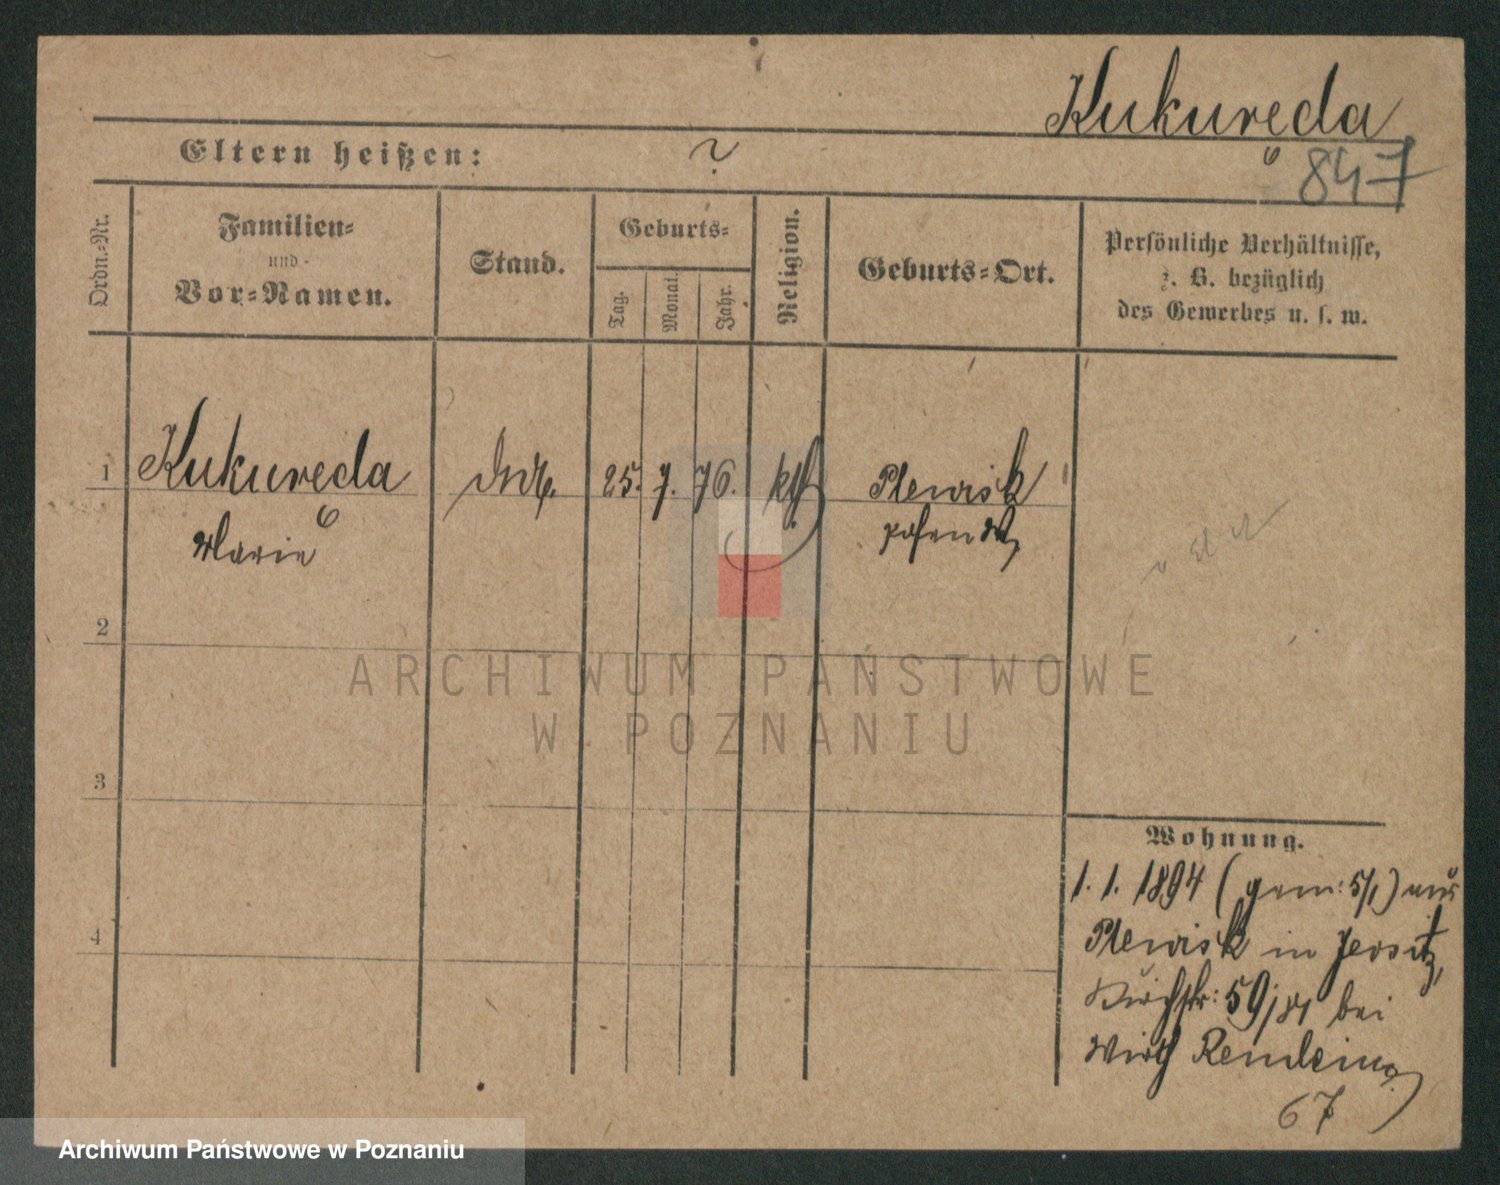 Kukureda
Eltern heißen: ?
847
Ordn.=Nr.
Familien=
und
Vor=Namen.
Stand.
Geburts=
Tag.
Monat.
Jahr.
Religion.
Geburts=Ort.
Persönliche Verhältnisse,
z. B. bezüglich
des Gewerbes u. s. w.
1
Kukureda
25. 7. 76.
kth
Plewisk
Marie
Posen W
2
ARCHIWUM PAŃSTWOWE
W POZNANIU
3
Wohnung.
1. 1. 1894 (gem: 5/1) aus
4
Plewisk in Jersitz,
Kirchstr: 59 bei
Wirth
67
Archiwum Państwowe w Poznaniu